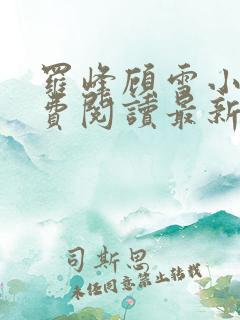 羅峰顾雪小
費閱讀最新
司斯思
未经同意禁止转载